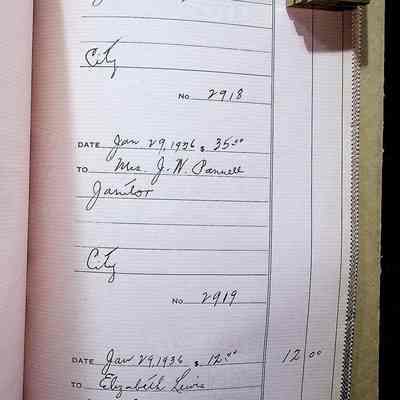 City
No 2918
DATE Jan 29, 1936 $ 35.00
TO Mrs. J. W. Pannell
Janitor
City
No 2919
DATE Jan 29, 1936 $ 12.00 12 00
TO Elizabeth Lewis